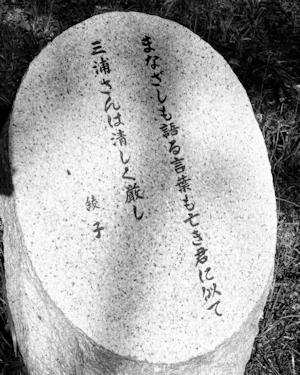 まなざしも語る言葉も亡き君に似て
三浦さんは清しく厳し
綾子